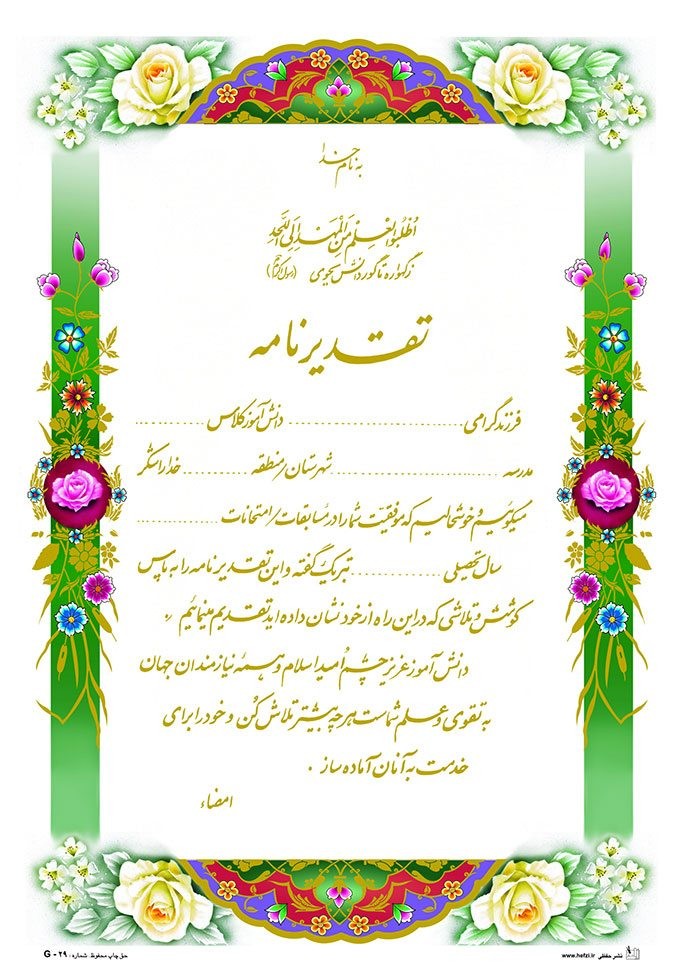 به نام خدا
اُطْلُبُوا العِلْمَ مِنَ الْمَهْدِ اِلَی اللَّحْدِ
زگهواره تا گور دانش بجوی (رسول اکرم)
تقدیرنامه
فرزند گرامی ........................ دانش آموز کلاس ............
مدرسه ........................ شهرستان/منطقه ............ خدا را شکر
میگوئیم و خوشحالیم که موفقیّت شما را در مسابقات/امتحانات ............
سال تحصیلی ............ تبریک گفته و این تقدیرنامه را به پاس
کوشش و تلاشی که در این راه از خود نشان داده اید تقدیم مینمائیم
دانش آموز عزیز چشم اُمید اسلام و همهٔ نیازمندان جهان
به تقوی و علم شماست هر چه بیشتر تلاش کُن و خود را برای
خدمت به آنان آماده ساز .
امضاء
نشر حفظی www.hefzi.ir
حق چاپ محفوظ شماره: G - ۲۹